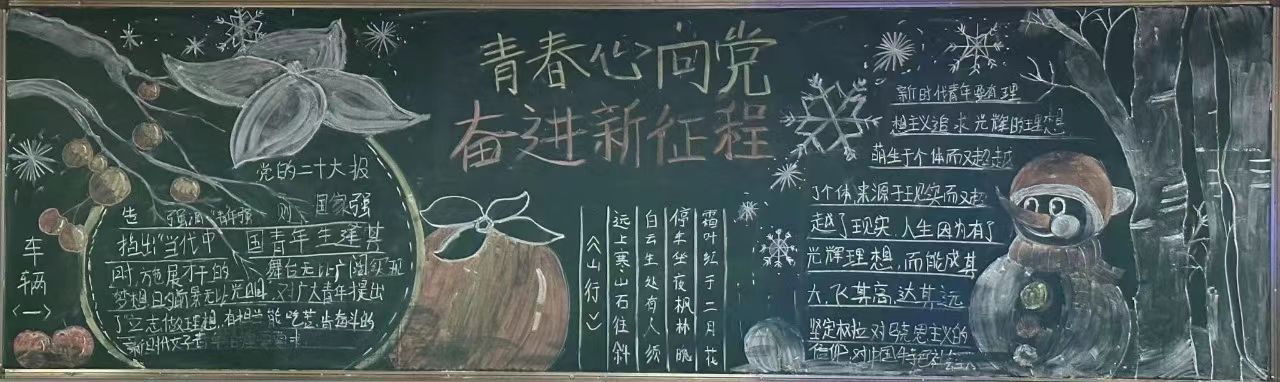 青春心向党
奋进新征程
党的二十大报
告 强调"青年强 则 国家强
指出"当代中 国青年生逢其
时,施展才干的 舞台无比广阔实现
梦想的前景无比光明 对广大青年提出
了立志做理想,有担当能吃苦肯奋斗的
新时代好青年的重要要求
车辆
〈一〉
《山行》
远上寒山石往斜
白云生处有人须
停车坐夜枫林晚
霜叶红于二月花
新时代青年要有理
想主义追求光辉的理想
萌生于个体而又超越
了个体,来源于现实而又超
越了现实,人生因为有了
光辉理想,而能成其
大,飞其高,达其远
坚定树立对马克思主义的
信仰,对中国特色社会